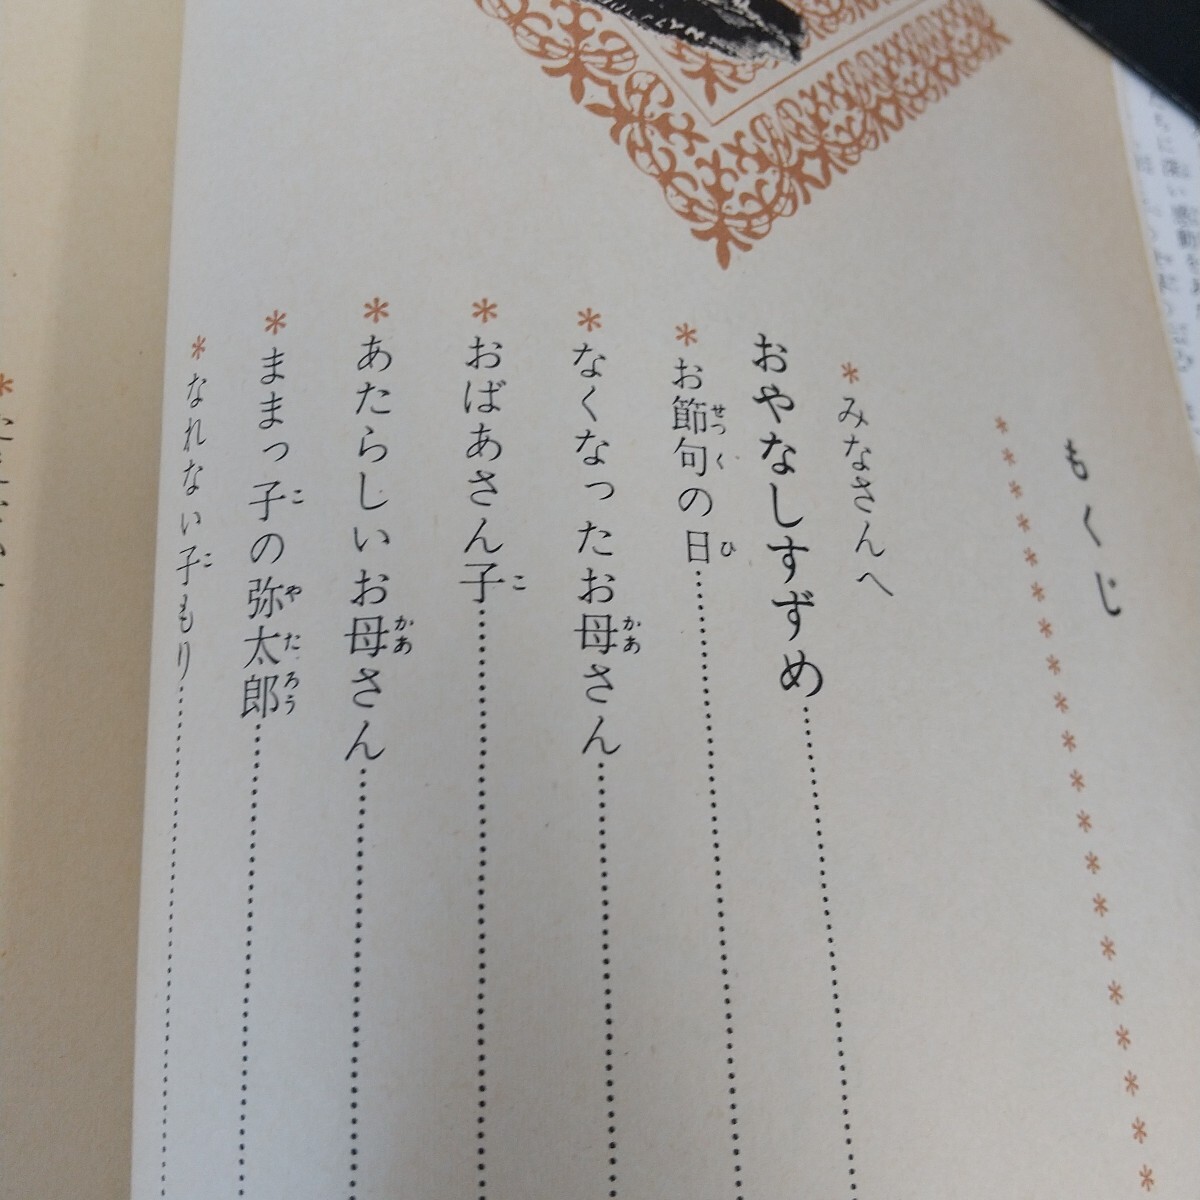 もくじ
＊みなさんへ
おやなしすずめ
＊お節句の日
＊なくなったお母さん
＊おばあさん子
＊あたらしいお母さん
＊ままっ子の弥太郎
＊なれない子もり